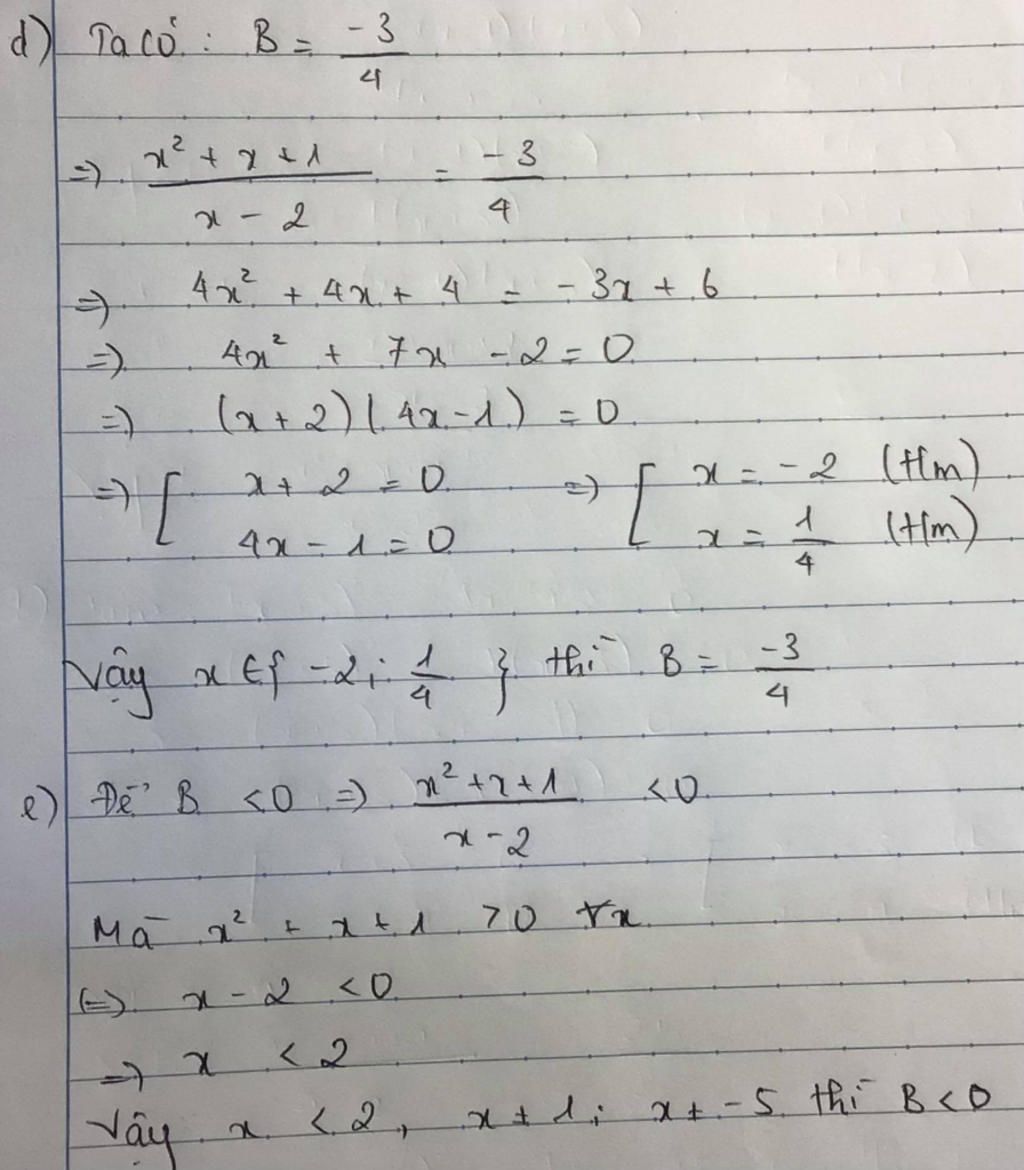 d) Ta có : B = -3/4
=> (x² + x + 1)/(x - 2) = -3/4
=> 4x² + 4x + 4 = - 3x + 6
=> 4x² + 7x - 2 = 0
=> (x + 2)(4x - 1) = 0
=> [ x + 2 = 0 => [ x = -2 (t/m)
4x - 1 = 0 x = 1/4 (t/m)
Vậy x ∈ { -2 ; 1/4 } thì B = -3/4
e) Để B < 0 => (x² + x + 1)/(x - 2) < 0
Mà x² + x + 1 > 0 ∀x
(=) x - 2 < 0
=> x < 2
Vậy x < 2, x ≠ 1 ; x ≠ -5 thì B < 0